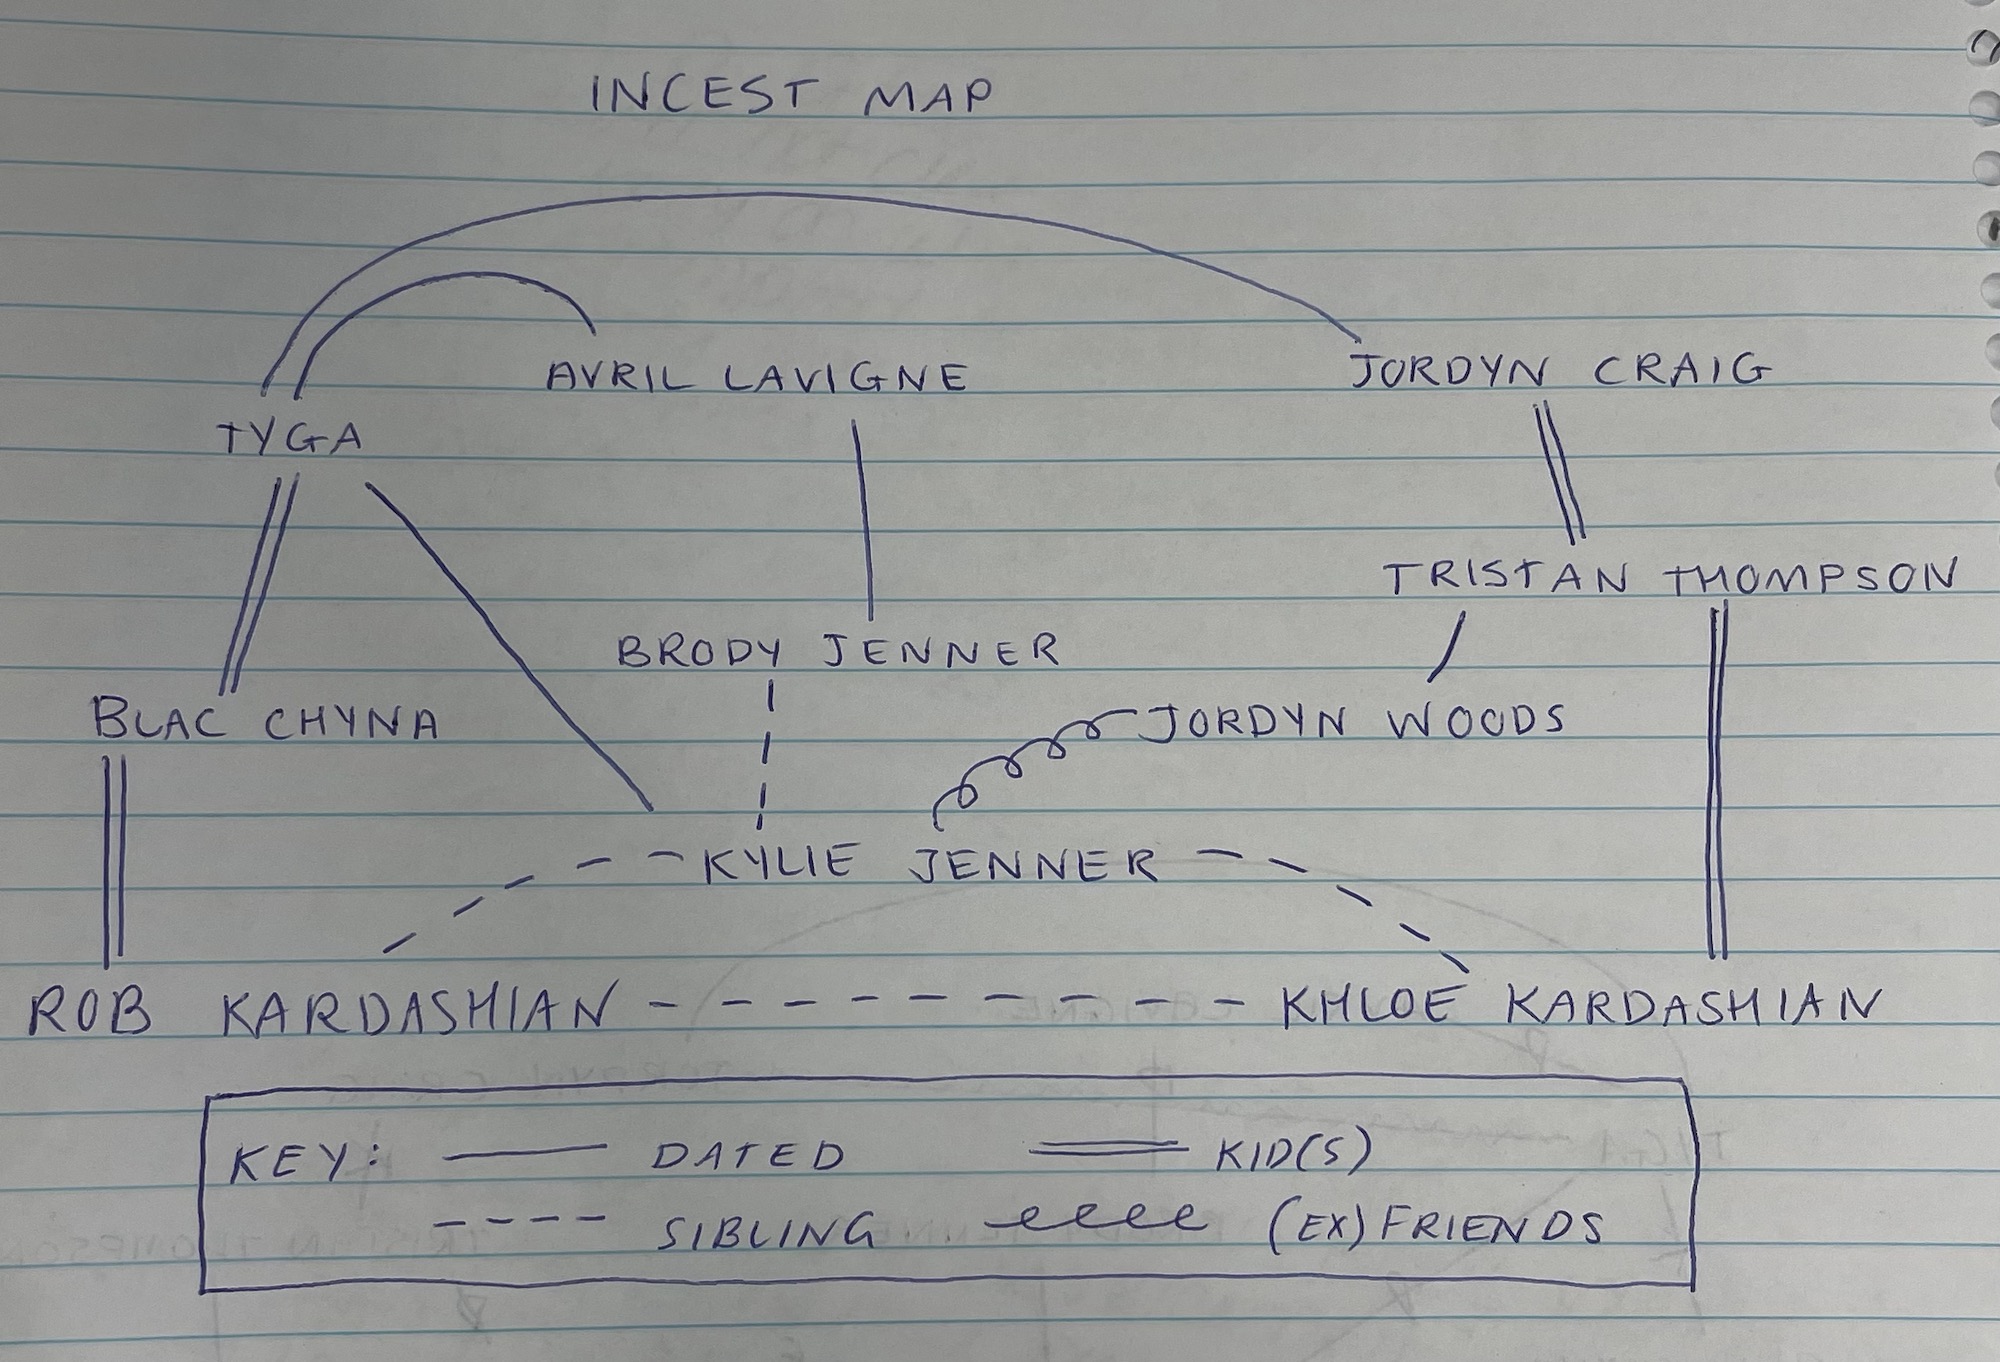 INCEST MAP
AVRIL LAVIGNE
JORDYN CRAIG
TYGA
TRISTAN THOMPSON
BRODY JENNER
BLAC CHYNA
JORDYN WOODS
KYLIE JENNER
ROB KARDASHIAN
KHLOE KARDASHIAN
KEY: DATED KID(S)
SIBLING (EX)FRIENDS